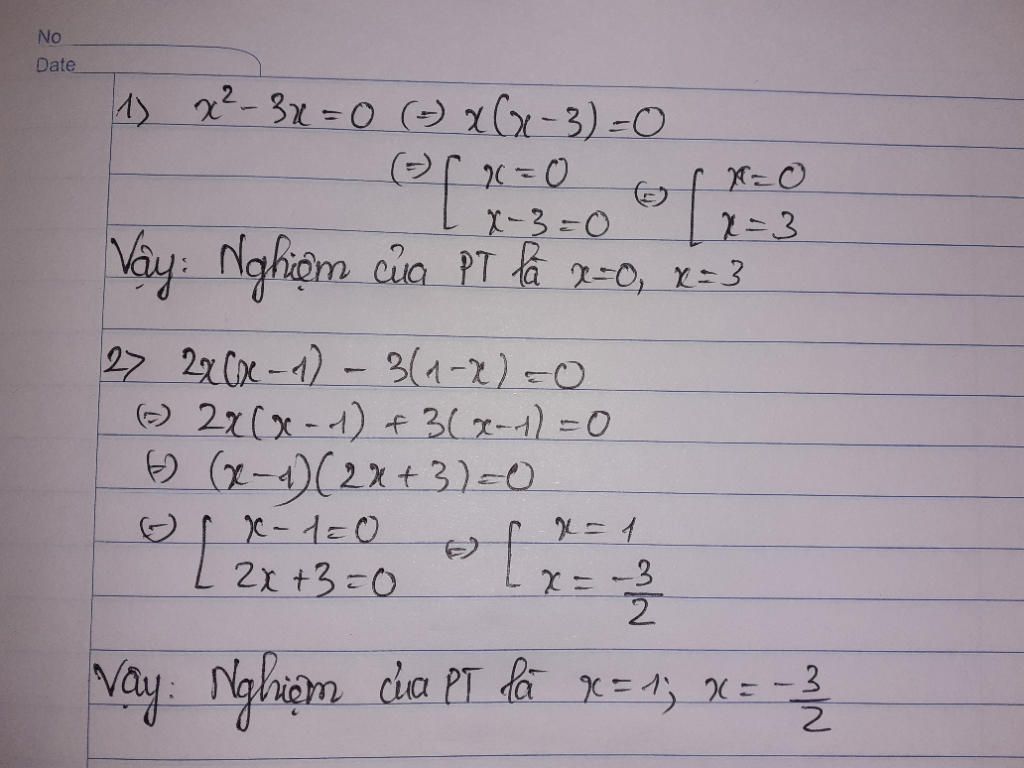 No
Date
1) x² - 3x = 0 (=) x(x - 3) = 0
(=) [ x = 0 (=) [ x = 0
x - 3 = 0 x = 3
Vậy: Nghiệm của PT là x = 0, x = 3
2> 2x(x - 1) - 3(1 - x) = 0
(=) 2x(x - 1) + 3(x - 1) = 0
(=) (x - 1)(2x + 3) = 0
(=) [ x - 1 = 0 (=) [ x = 1
2x + 3 = 0 x = -3/2
Vậy: Nghiệm của PT là x = 1; x = -3/2